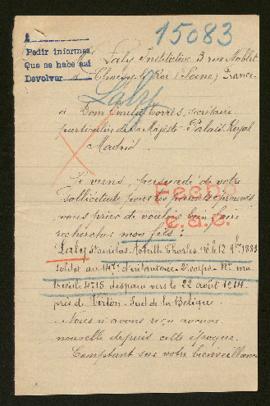 15083
A
Pedir informes
Que se habe así
Devolver
Laly Institutrice, 3 rue Noblet
Choisy le Roi (Seine) France
Laly
à Dom Emilio Torrès, secrétaire
particulier de sa Majesté. Palais Royal
Madrid.
Je viens, persuadé de votre
sollicitude pour les
vous prier de vouloir bien faire
rechercher mon fils:
Fecho
Laly Stanislas Achille Charles né le 12 1889
soldat au 14e d'infanterie
4915 disparu vers le 22 août 1914
près de Virton. Sud de la Belgique
Nous n'avons reçu aucune
nouvelle depuis cette époque.
Comptant sur votre bienveillance